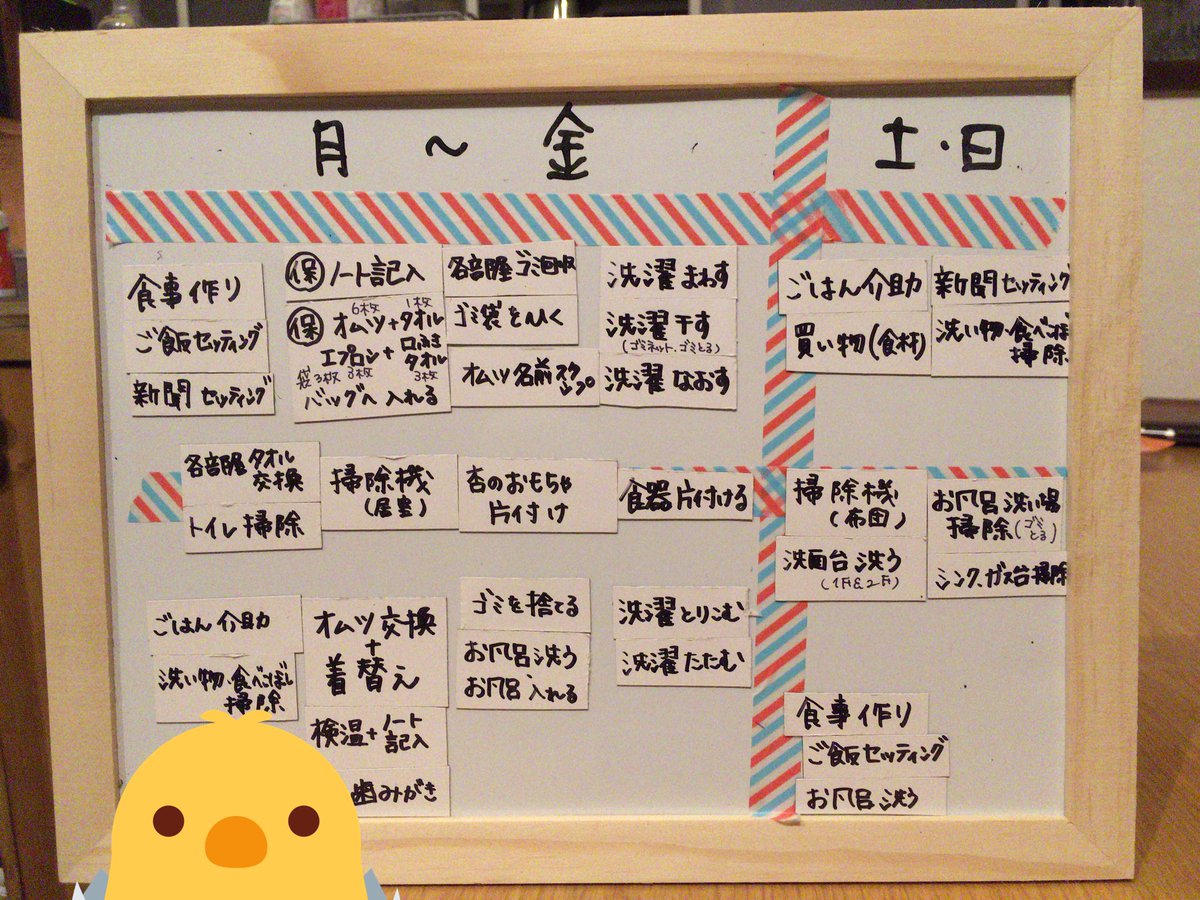 月 ～ 金
土・日
食事作り
ご飯セッティング
新聞セッティング
㋭ノート記入
㋭オムツ+タオル
6枚 1枚
エプロン+口ふきタオル
袋3枚 3枚 3枚
バッグへ入れる
各部屋ゴミ回収
ゴミ袋をひく
オムツ名前スタンプ
洗濯まわす
洗濯干す
(ゴミネット、ゴミとる)
洗濯なおす
ごはん介助
買い物(食材)
新聞セッティング
洗い物・食べこぼし
掃除
各部屋タオル
交換
トイレ掃除
掃除機
(居室)
杏のおもちゃ
片付け
食器片付ける
掃除機
(布団)
洗面台洗う
(1F&2F)
お風呂洗い場
掃除(ゴミとる)
シンク、ガス台掃除
ごはん介助
洗い物、食べこぼし
掃除
オムツ交換
+
着替え
検温+ノート
記入
歯みがき
ゴミを捨てる
お風呂洗う
お風呂入れる
洗濯とりこむ
洗濯たたむ
食事作り
ご飯セッティング
お風呂洗う